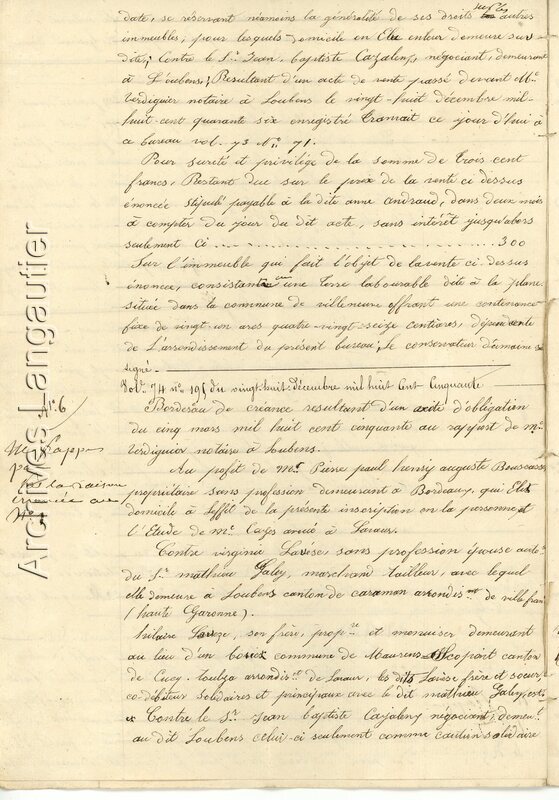 date, se réservant néamoins la généralité de ses droits sur les autres
immeubles, pour lesquels domicile en Elu enleur demeure sur
dite; Contre le Sr. Jean baptiste Cazaleny, négociant, demeurant
à Loubens; Résultant d'un acte de vente passé devant Me.
Verdiguier notaire à Loubens le vingt-huit décembre mil-
huit-cent quarante six enregistré transcrit ce jour d'hui à
ce bureau vol. 73 No. 71.
Pour sureté et privilège de la somme de trois cent
francs, Restant due sur le prix de la vente ci dessus
énoncée stipulé payable à la dite anne andraud, dans deux mois
à compter du jour du dit acte, sans intérêt jusqu'alors
seulement ci . . . . . . . . . . . . . . . . . . . . 300
Sur l'immeuble qui fait l'objet de la vente ci-dessus
énoncée, consistant en une terre labourable dite à la plane
située dans la commune de villeneuve offrant une contenance
fixe de vingt-un ares quatre-vingt-seize centiares, dépendante
de L'arrondissement du présent bureau; le conservateur
signé
Vol. 74 no. 195 du vingt-huit-décembre mil huit cent cinquante
No. 6
Bordereau de créance resultant d'un acte d'obligation
du cinq mars mil huit cent cinquante au rapport de me.
Verdiguier notaire à Loubens.
Au profit de mr. Pierre paul henry auguste Bouscass
propriétaire sans profession demeurant à Bordeaux, qui Elit
domicile à l'effet de la présente inscription en la personne et
l'Etude de me. Cays avoué à Lavaur.
Contre virginie Lavese, sans profession épouse
du Sr. mathieu Galey, marchand tailleur, avec lequel
elle demeure à Loubens canton de caraman arrondismt. de villefran
(haute Garonne).
hilaire Laveze, son frère, propre. et menuisier demeurant
au lieu d'un commune de Maurens Scopont canton
de Cucq-toulza arrondist. de Lavaur, les dits Lavese frère et sœur
co-débiteur solidaires et principaux avec le dit mathieu Galey,
Contre le Sr. Jean baptiste Cazaleny négociant, demeut.
au dit Loubens celui-ci seulement comme caution solidaire
Archives Langautier